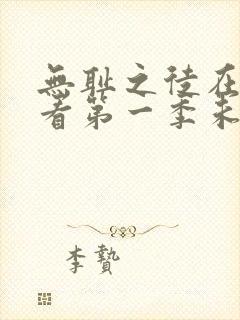 無耻之徒在
看第一季未
李贄